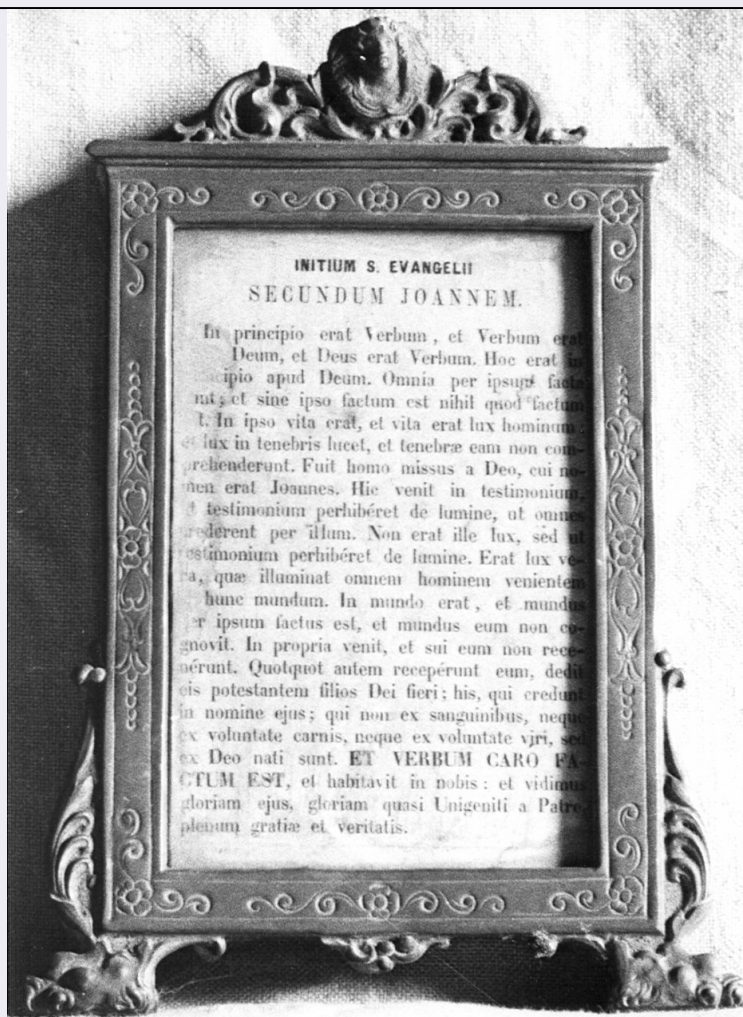 INITIUM S. EVANGELII
SECUNDUM JOANNEM.
In principio erat Verbum, et Verbum erat
Deum, et Deus erat Verbum. Hoc erat in
cipio apud Deum. Omnia per ipsum facta
nt; et sine ipso factum est nihil quod factum
t. In ipso vita erat, et vita erat lux hominum:
et lux in tenebris lucet, et tenebræ eam non com-
prehenderunt. Fuit homo missus a Deo, cui no-
men erat Joannes. Hic venit in testimonium,
t testimonium perhibéret de lumine, ut omnes
rederent per illum. Non erat ille lux, sed ut
estimonium perhibéret de lumine. Erat lux ve-
ra, quæ illuminat omnem hominem venientem
hunc mundum. In mundo erat, et mundus
er ipsum factus est, et mundus eum non co-
gnovit. In propria venit, et sui eum non rece-
pérunt. Quotquot autem recepérunt eum, dedit
eis potestantem filios Dei fieri; his, qui credunt
in nomine ejus; qui non ex sanguinibus, neque
ex voluntate carnis, neque ex voluntate viri, sed
ex Deo nati sunt. ET VERBUM CARO FA-
CTUM EST, et habitavit in nobis: et vidimus
gloriam ejus, gloriam quasi Unigeniti a Patre
plenum gratiæ et veritatis.